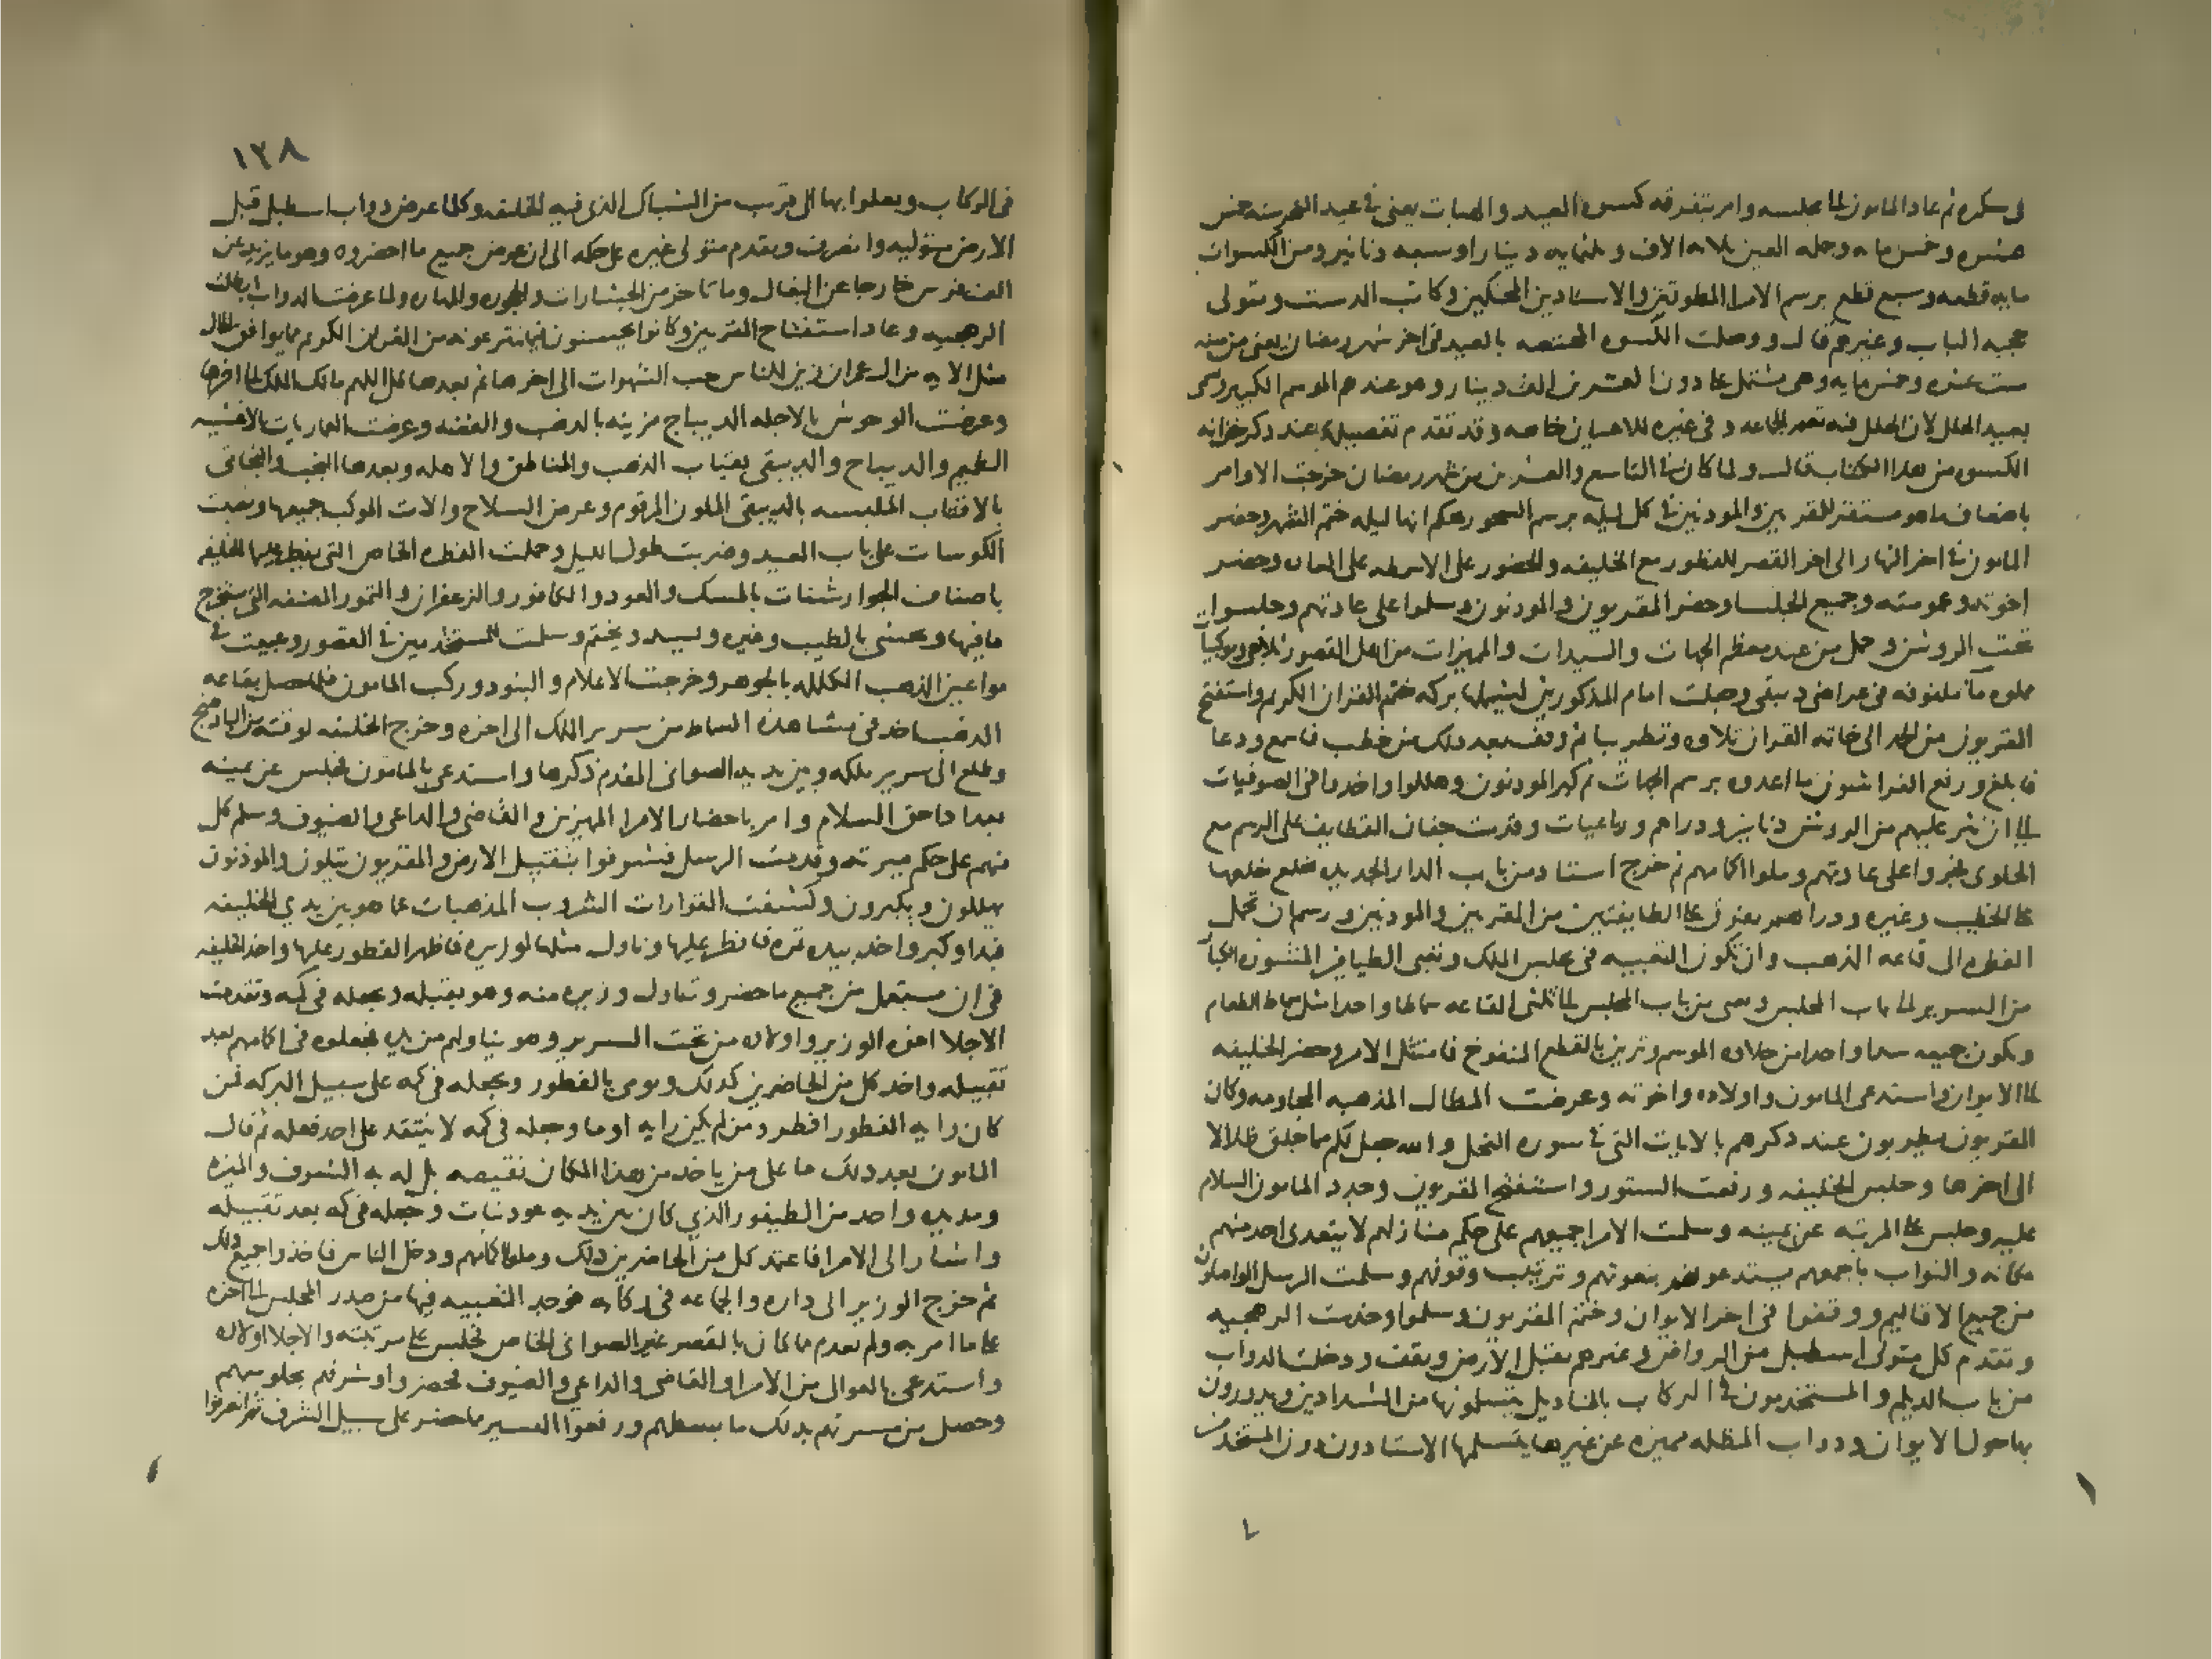 في سكره ثم عاد المامون الى مجلسه وامر بتفرقه كسوه العيد والهبات يعنى فى عيد النحر سنه خمس
عشره وخمس مايه وجمله العين ثلاثه الاف وثلثمايه دينار وسبعه دنانير ومن الكسوات
مايه قطعه وسبع قطع برسم الامرا المطوقين والاستادين المحنكين وكاتب الدست ومتولى
حجبه الباب وغيرهم قال ووصلت الكسوه المختصه بالعيد فى اخر شهر رمضان يعنى من سنه
ست عشره وخمس مايه وهى تشتمل على دون العشرين الف دينار وهو عندهم الموسم الكبير ويسمى
بعيد الحلل لان الحلل فيه تعم الجماعه وفى غيره للاعيان خاصه وقد تقدم تفصيلها عند ذكر خزانه
الكسوه من هذا الكتاب قال ولما كان فى التاسع والعشرين من شهر رمضان خرجت الاوامر
باضعاف ما هو مستقر للمقرين والموذنين فى كل ليله برسم السحور بحكم انها ليله ختم الشهر وحضر
المامون فى اخر النهار الى اخر القصر للفطور مع الخليفه والحضور على الاسمطه على العاده وحضر
اخوته وعمومته وجميع الجلسا وحضر المقريون والموذنون وسلموا على عادتهم وجلسوا
تحت الروشن وحمل من عند معظم الجهات والسيدات والمميزات من اهل القصور ثلاجى وموكبيات
مملوه ما ملفوفه فى عراضى دبيقى وجعلت امام المذكورين ليشملها بركه ختم القران الكريم واستفتح
المقريون من الحمد الى خاتمه القران تلاوه وتطريبا ثم وقف بعد ذلك من خطب فاسمع ودعا
فابلغ ورفع الفراشون ما اعدوه برسم الجهات ثم كبر الموذنون وهللوا واخذوا فى الصوفيات
الى ان نثر عليهم من الروشن دنانير ودراهم ورباعيات وقدمت جفان القطايف على الرسم مع
الحلوى فجروا على عادتهم وملوا اكمامهم ثم خرج استاد من باب الدار الجديده بخلع خلعها
على الخطيب وغيره ودراهم تفرق على الطايفتين من المقرين والموذنين ورسم ان تحمل
الفطره الى قاعه الذهب وان تكون التعبيه فى مجلس الملك وتعبى الطيافير المشوره الكبار
من السرير الى باب المجلس وتعبى من باب المجلس الى ثلثى القاعه سماطا واحدا مثل سماط الطعام
ويكون جميعه سدا واحدا من حلاوه الموسم وتزين بالقطع المنفوخ فامتثل الامر وحضر الخليفه
الى الايوان واستدعى المامون واولاده واخوته وعرضت المظال المذهبه المجاومه وكان
المقريون يطربون عند ذكرهم بالايات التى فى سوره النحل والله جعل لكم مما خلق ظلالا
الى اخرها وجلس الخليفه ورفعت الستور واستفتح المقريون وجدد المامون السلام
عليه وجلس على المرتبه عن يمينه وسلمت الامرا جميعهم على حكم منازلهم لا يتعدى احد منهم
مكانه والنواب باجمعهم يستدعونهم بنعوتهم وترتيب وقوفهم وسلمت الرسل الواصلون
من جميع الاقاليم ووقفوا فى اخر الايوان وختم المقريون وسلموا وخدمت الرهجيه
وتقدم كل متولى اسطبل من الرواض وغيرهم يقبل الارض ويقف ودخلت الدواب
من باب الديلم والمستخدمون فى الركاب بالمناديل يتسلمونها من الشدادين ويدورون
بها حول الايوان ودواب المظله مميزه عن غيرها يتسلمها الاستادون والمستخدمون
١٣٨
فى الركاب ويعلوا بها الى قرب من الشباك الذى فيه الخليفه وكلما عرض دواب اسطبل قبل
الارض متوليه وانصرف وتقدم متولى غيره على حكمه الى ان عرض جميع ما احضروه وهو ما يزيد عن
الف فرس خارجا عن البغال وما تاخر من العشاريات والحجوره والمهاره ولما عرضت الدواب ابطلت
الرهجيه وعاد استفتاح المقرين وكانوا محسنون فيما ينتزعونه من القران الكريم مما يوافق الحال
مثل الايه من ال عمران زين للناس حب الشهوات الى اخرها ثم بعدها قل اللهم مالك الملك الى اخرها
وعرضت الوحوش بالاجله الديباج مزينه بالذهب والفضه وعرضت العماريات بالاغشيه
العظيم والديباج والدبيقى بقباب الذهب والمناطق والاهله وبعدها النجب والبخاتى
بالاقتاب الملبسه بالدبيقى الملون المرقوم وعرض السلاح والات الموكب جميعها ونصبت
الكوسات على باب العيد وضربت طول الليل وحملت الفطره الخاص التى يفطر عليها الخليفه
باصناف الجوارشنات بالمسك والعود والكافور والزعفران والتمور المصنفه التى يستخرج
ما فيها ويحشى بالطيب وغيره ويسد ويختم وسلمت للمستخدمين فى القصور وعبيت فى
مواعين الذهب المكلله بالجوهر وخرجت الاعلام والبنود وركب المامون فلما حصل بقاعه
الذهب اخذ فى مشاهده السماط من سرير الملك الى اخره وخرج الخليفه لوقته من الباذهنج
وطلع الى سرير ملكه وبين يديه الصوانى المقدم ذكرها واستدعى بالمامون فجلس عن يمينه
بعد اداحق السلام وامر باحضار الامرا المميزين والقاضى والداعى والضيوف وسلم كل
منهم على حكم ميزته وقدمت الرسل فشرفوا بتقبيل الارض والمقريون يتلون والموذنون
يهللون ويكبرون وكشفت القوارات الشروب المذهبات عما هو بين يدى الخليفه
فبدا وكبر واخذ بيده تمره فافطر عليها وناول مثلها لوزيره فاظهر الفطور عليها واخذ الخليفه
فى ان يستعمل من جميع ما حضر ويناول وزيره منه وهو يقبله ويجعله فى كمه وتقدمت
الاجلا اخوه الوزير واولاده من تحت السرير وهو يناولهم من يده فيجعلوه فى اكمامهم بعد
تقبيله واخذ كل من الحاضرين كذلك ويومى بالفطور ويجعله فى كمه على سبيل البركه فمن
كان رايه الفطور افطر ومن لم يكن رايه اوما وجعله فى كمه لا ينتقد على احد فعله ثم قال
المامون بعد ذلك ما على من ياخذ من هذا المكان نقيصه بل له به الشرف والميزه
ومد يده واخذ من الطيفور الذى كان بين يديه عود نبات وجعله فى كمه بعد تقبيله
واشار الى الامرا فاعتمد كل من الحاضرين ذلك وملوا اكمامهم ودخل الناس فاخذوا جميع ذلك
ثم خرج الوزير الى داره والجماعه فى ركابه فوجد التعبيه فيها من صدر المجلس الى اخره
على ما امر به ولم يعدم مما كان بالقصر غير الصوانى الخاص فجلس على مرتبته والاجلا اولاده
واستدعى بالعوالى من الامرا والقاضى والداعى والضيوف فحضروا وشرفهم بجلوسهم
وحصل من مسرتهم بذلك ما بسطهم ورفعوا اليسير مما حضر على سبيل الشرف ثم انصرفوا